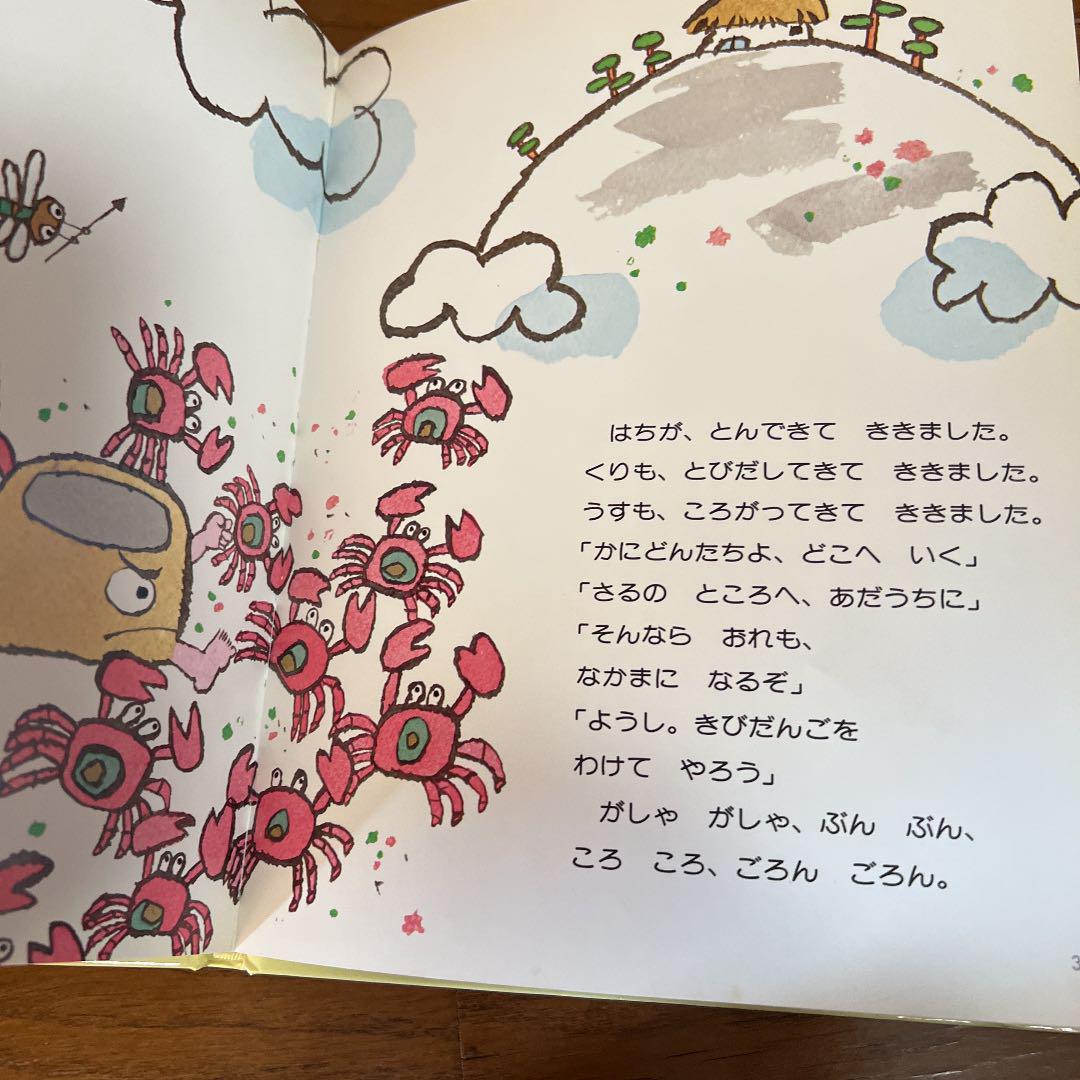 はちが、とんできて　ききました。
くりも、とびだしてきて　ききました。
うすも、ころがってきて　ききました。
「かにどんたちよ、どこへ　いく」
「さるの　ところへ、あだうちに」
「そんなら　おれも、
なかまに　なるぞ」
「ようし。きびだんごを
わけて　やろう」
がしゃ　がしゃ、ぶん　ぶん、
ころ　ころ、ごろん　ごろん。